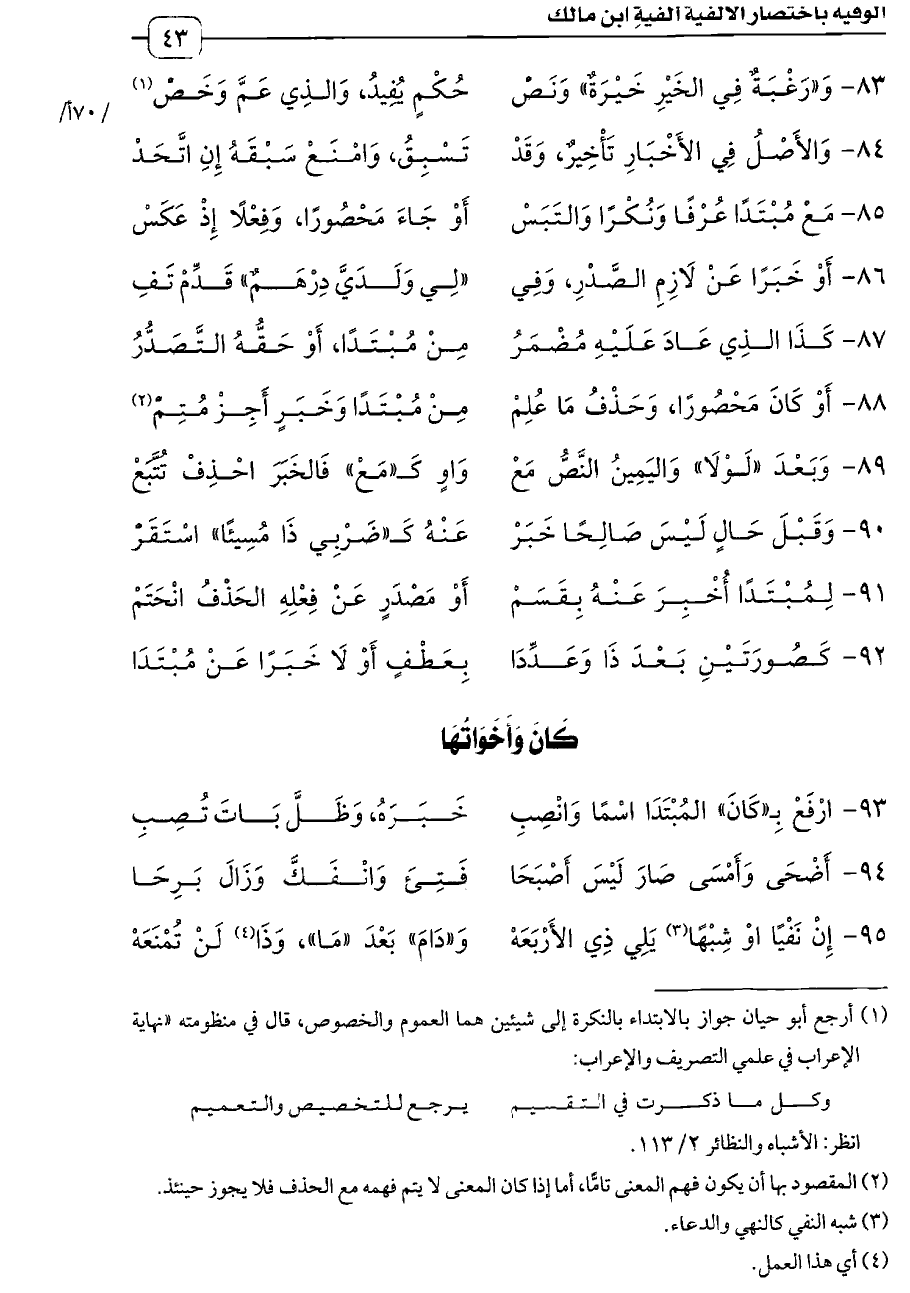 الوفية باختصار الألفية ألفية ابن مالك
٤٣
٨٣- وَ«رَغْبَةٌ فِي الخَيْرِ خَيْرَةٌ» وَنَصْ حُكْمٍ يُفِيدُ، وَالَّذِي عَمَّ وَخَصْ(١) /١٧٠أ/
٨٤- وَالأَصْلُ فِي الأَخْبَارِ تَأْخِيرٌ، وَقَدْ تَسْبِقُ، وَامْنَعْ سَبْقَهُ إِنِ اتَّحَدْ
٨٥- مَعْ مُبْتَدًا عُرْفًا وَنُكْرًا وَالتَبَسْ أَوْ جَاءَ مَحْصُورًا، وَفِعْلًا إِذْ عَكَسْ
٨٦- أَوْ خَبَرًا عَنْ لَازِمِ الصَّدْرِ، وَفِي «لِي وَلَدَيَّ دِرْهَمٌ» قَدِّمْ تَفِ
٨٧- كَذَا الَّذِي عَادَ عَلَيْهِ مُضْمَرُ مِنْ مُبْتَدًا، أَوْ حَقُّهُ التَّصَدُّرُ
٨٨- أَوْ كَانَ مَحْصُورًا، وَحَذْفُ مَا عُلِمْ مِنْ مُبْتَدًا وَخَبَرٍ أَجِزْ مُتِمْ(٢)
٨٩- وَبَعْدَ «لَوْلَا» وَاليَمِينُ النَّصُّ مَعْ وَاوٍ كَـ«مَعْ» فَالخَبَرَ احْذِفْ تُتَّبَعْ
٩٠- وَقَبْلَ حَالٍ لَيْسَ صَالِحًا خَبَرْ عَنْهُ كَـ«ضَرْبِي ذَا مُسِيئًا» اسْتَقَرْ
٩١- لِمُبْتَدًا أُخْبِرَ عَنْهُ بِقَسَمْ أَوْ مَصْدَرٍ عَنْ فِعْلِهِ الحَذْفُ انْحَتَمْ
٩٢- كَصُورَتَيْنِ بَعْدَ ذَا وَعَدِّدَا بِعَطْفٍ أَوْ لَا خَبَرًا عَنْ مُبْتَدَا
كَانَ وَأَخَوَاتُهَا
٩٣- ارْفَعْ بِـ«كَانَ» المُبْتَدَا اسْمًا وَانْصِبِ خَبَرَهُ، وَظَلَّ بَاتَ تُصِبِ
٩٤- أَضْحَى وَأَمْسَى صَارَ لَيْسَ أَصْبَحَا فَتِئَ وَانْفَكَّ وَزَالَ بَرِحَا
٩٥- إِنْ نَفْيًا اوْ شِبْهًا(٣) يَلِي ذِي الأَرْبَعَهْ وَ«دَامَ» بَعْدَ «مَا»، وَذَا(٤) لَنْ تُمْنَعَهْ
(١) أرجع أبو حيان جواز بالابتداء بالنكرة إلى شيئين هما العموم والخصوص، قال في منظومته «نهاية
الإعراب في علمي التصريف والإعراب:
وكل ما ذكرت في التقسيم يرجع للتخصيص والتعميم
انظر: الأشباه والنظائر ٢/ ١١٣.
(٢) المقصود بها أن يكون فهم المعنى تامًّا، أما إذا كان المعنى لا يتم فهمه مع الحذف فلا يجوز حينئذ.
(٣) شبه النفي كالنهي والدعاء.
(٤) أي هذا العمل.